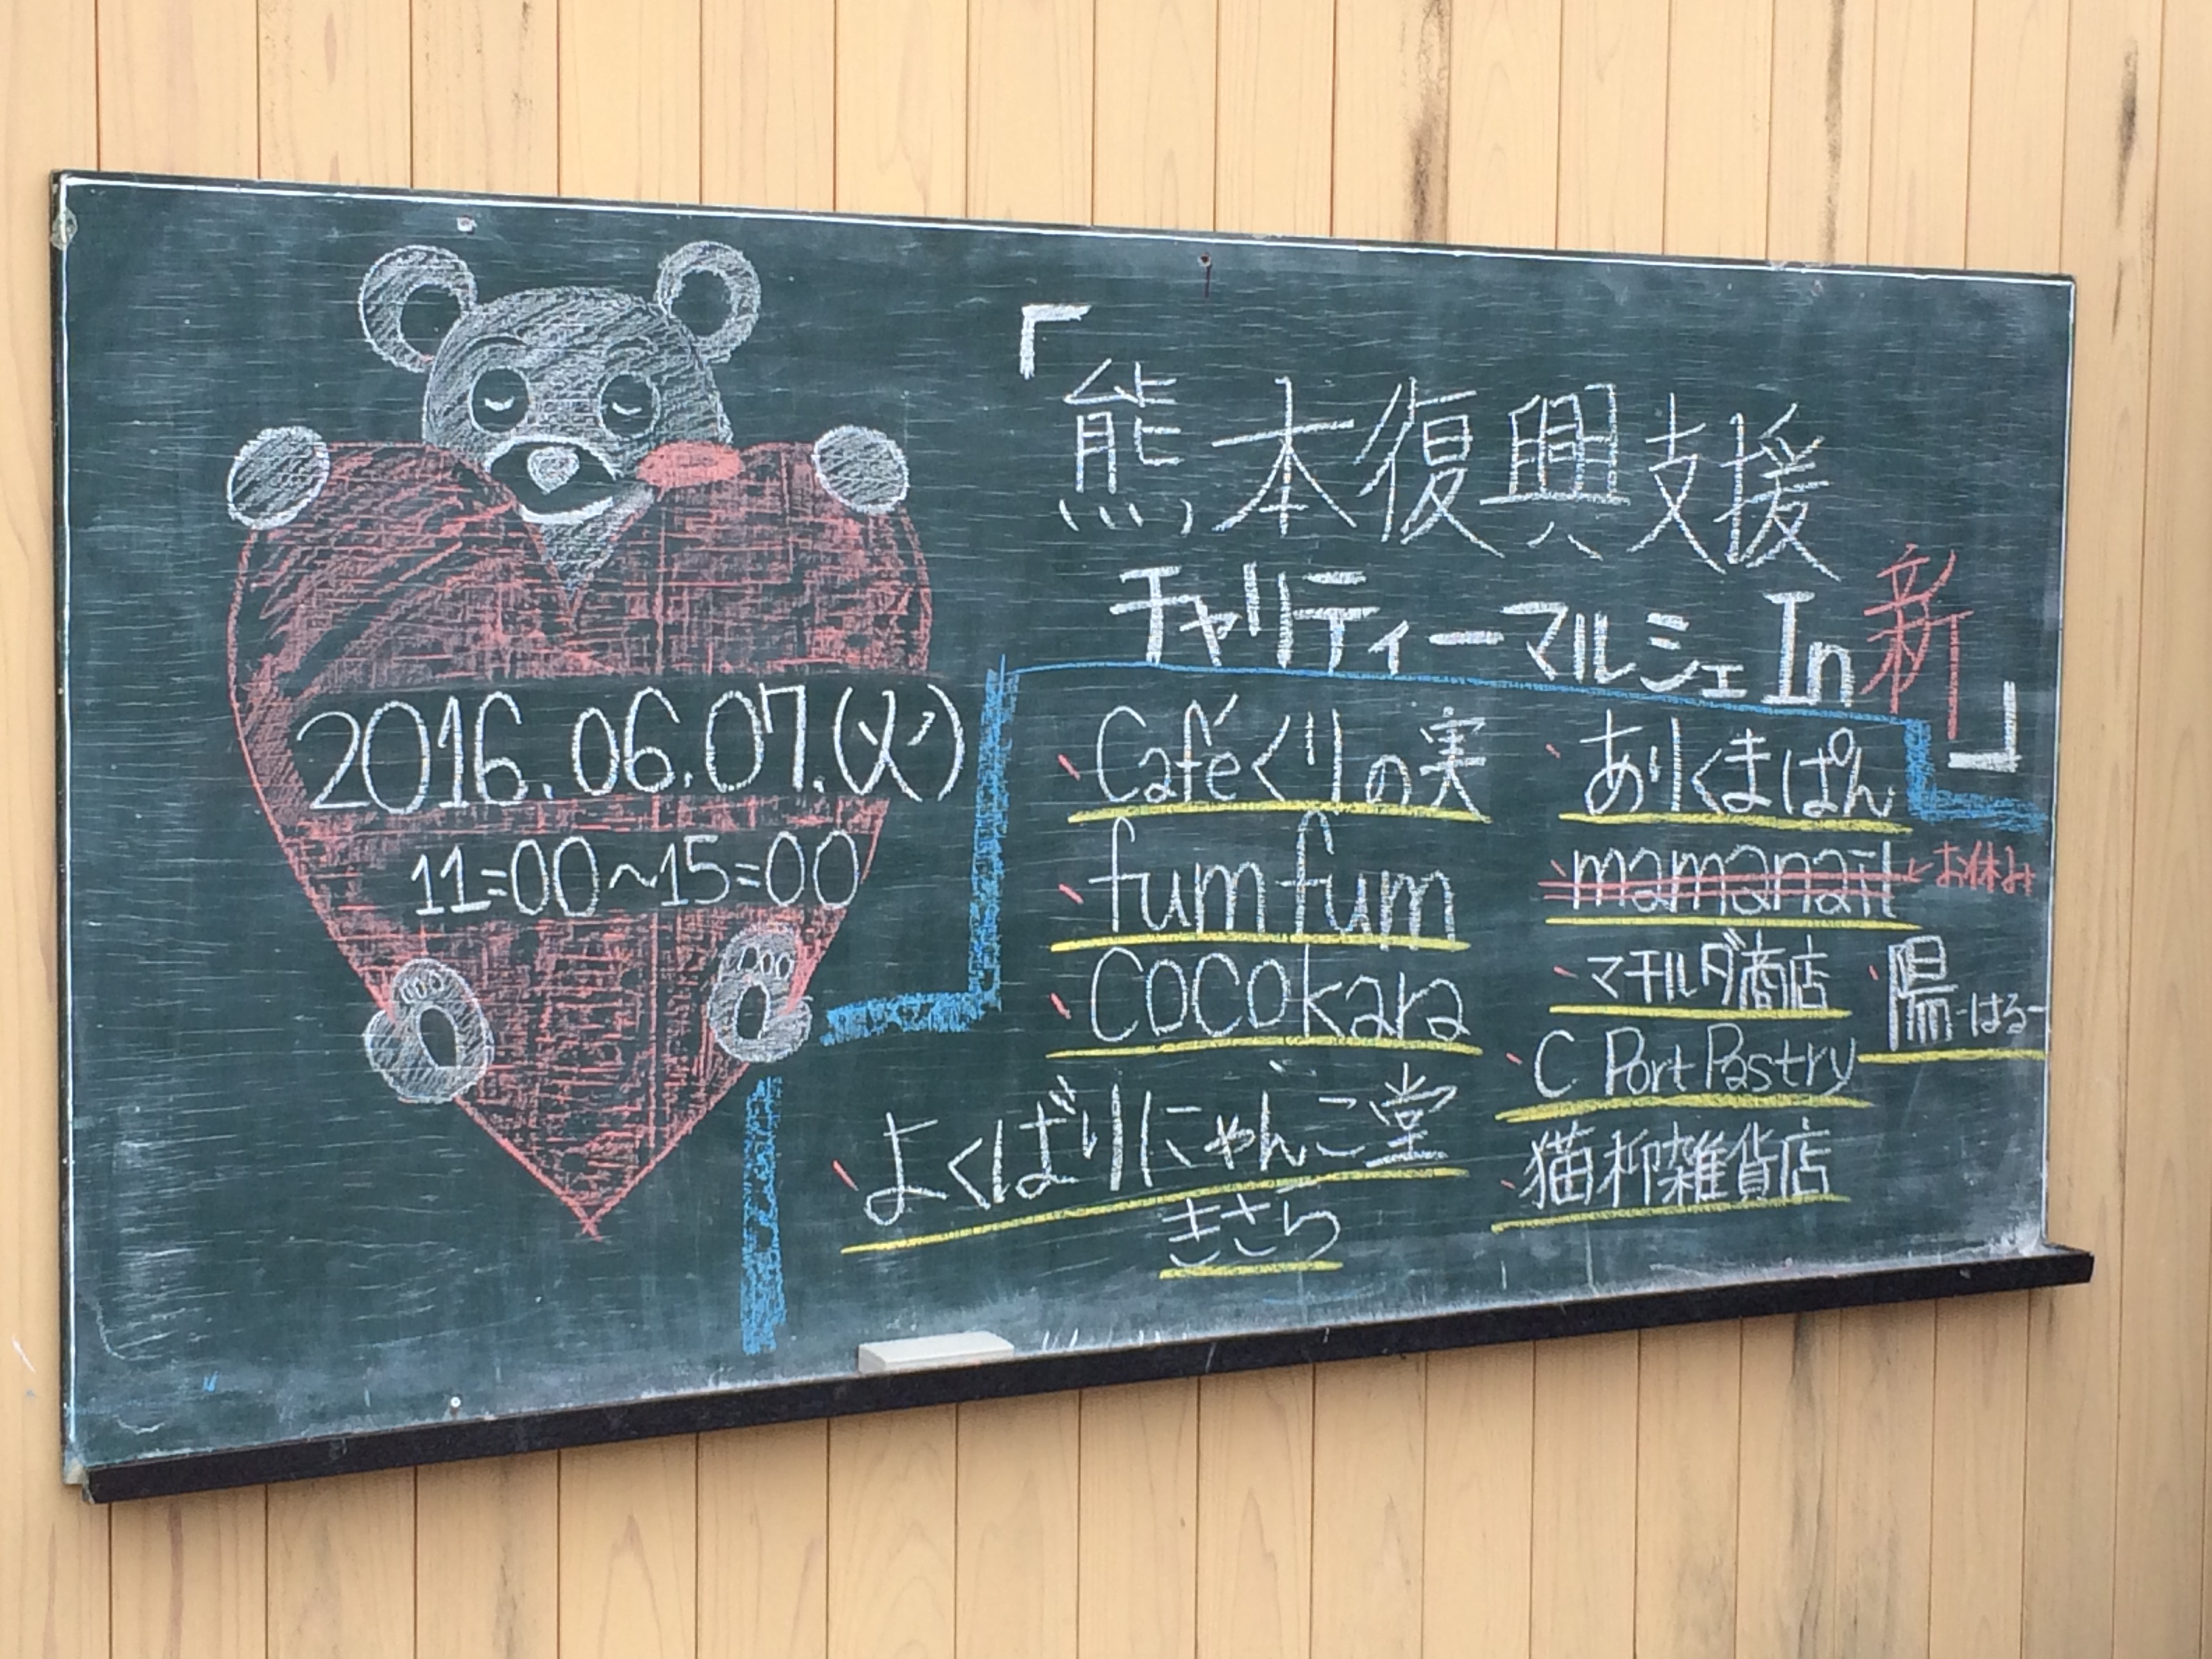 「熊本復興支援
チャリティーマルシェIn新」
2016.06.07.(火)
11=00~15=00
、Caféくりの実
、fumfum
、COCOkara
、よくばりにゃんこ堂
きさら
、ありくまぱん
、mamanail ←お休み
、マチルダ商店
、陽-はる-
、C Port Pastry
、猫柳雑貨店